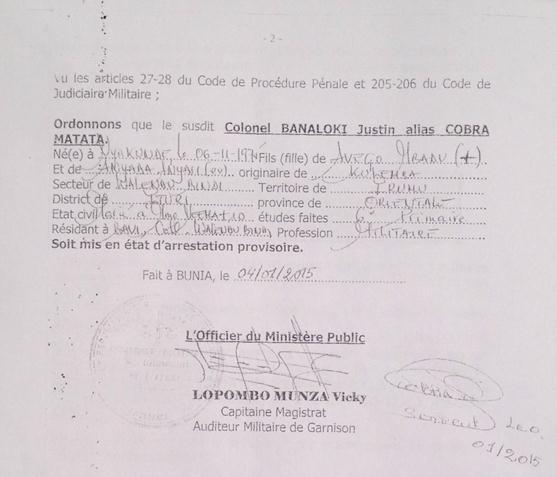 - 2 -
Vu les articles 27-28 du Code de Procédure Pénale et 205-206 du Code de
Judiciaire Militaire ;
Ordonnons que le susdit Colonel BANALOKI Justin alias COBRA
MATATA.
Né(e) à NYAKUNDE, le 06-11-197 Fils (fille) de AVEGO (+)
Et de originaire de
Secteur de WALENDU BINDI Territoire de IRUMU
District de ITURI province de ORIENTALE
Etat civil études faites 6è Primaire
Résidant à BAVI, WALENDU BINDI Profession MILITAIRE
Soit mis en état d'arrestation provisoire.
Fait à BUNIA, le 04/01/2015
L'Officier du Ministère Public
LOPOMBO MUNZA Vicky
Capitaine Magistrat
Auditeur Militaire de Garnison
COBRA
01/2015